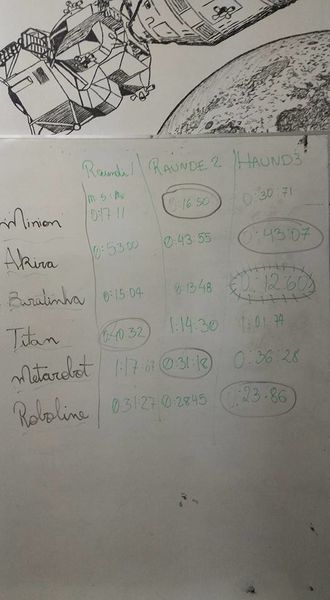 Raunde 1 RAUNDE 2 HAUND3
m s ms
Minion 0:17 11 0:16:50 0:30 71
Akira 0:53 00 0:43 55 0:43:07
Baratinha 0:15:04 0:13:48 0:12:60
Titan 0:40.32 1:14:30 1:01.74
Metarobot 1:17:01 0:31:18 0:36:28
Roboline 0:31:27 0:28:45 0:23:86